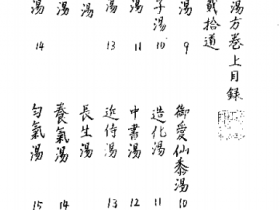 湯方卷上目錄
貳拾道
湯 9
御愛仙黍湯 10
子湯 10
造化湯 11
湯 11
中書湯 12
湯 13
近侍湯 13
湯
長生湯
湯
養氣湯 14
湯 14
匀氣湯 15